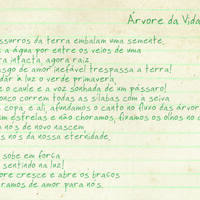 Árvore da Vida
ssurros da terra embalam uma semente,
e a água por entre os veios de uma
ra intacta, agora raiz,
asgo de amor inefável trespassa a terra!
dár à luz o verde primavera,
e o caule e a voz sonhada de um pássaro!
onco correm todas as sílabas com a seiva
copa, e ali, afundamos o canto no fluxo das árvor
m estrelas e não choramos, fixamos os olhos no c
nós de novo nascem
s nós da nossa eternidade,
sobe em força
sentando na luz!
ore cresce e abre os braços
ramos de amor para nós.